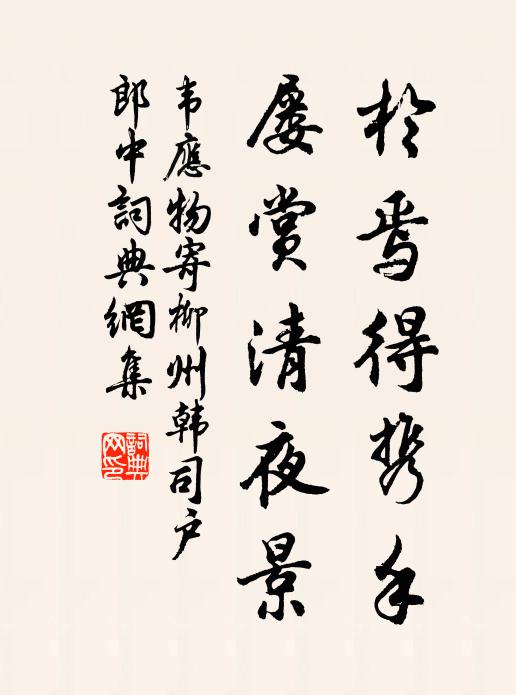 於焉得携手
屡赏清夜景
韦應物寄柳州韩司户
郎中詞典網集
詞典
网印